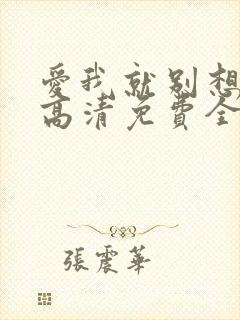 愛我就別想
高清免費全
張震華